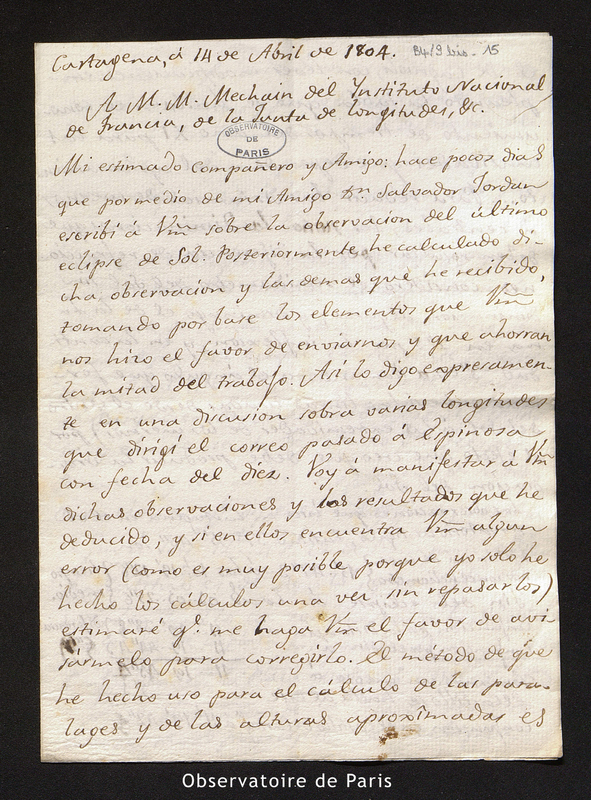 Cartagena, á 14 de Abril de 1804.
B4/9 bis - 15
A M. M. Mechain del Instituto Nacional
de Francia, de la Junta de longitudes, &c.
OBSERVATOIRE
DE
PARIS
Mi estimado Compañero y Amigo: hace pocos dias
que por medio de mi Amigo Dn. Salvador Jordan
escribí á Vm sobre la observacion del último
eclipse de Sol: Posteriormente he calculado di-
cha observacion y las demas que he recibido,
tomando por base los elementos que Vm
nos hizo el favor de enviarnos y que ahorran
la mitad del trabajo. Asi lo digo expresamen-
te en una discusion sobra varias longitudes
que dirigí el correo pasado á Espinosa
con fecha del diez. Voy á manifestar á Vm
dichas observaciones y los resultados que he
deducido, y si en ellos encuentra Vm algun
error (como es muy posible porque yo solo he
hecho los cálculos una vez sin repasarlos)
estimaré qe. me haga Vm el favor de avi
sármelo para corregirlo. El método de que
he hecho uso para el cálculo de las para-
lages y de las alturas aproximadas es
Observatoire de Paris